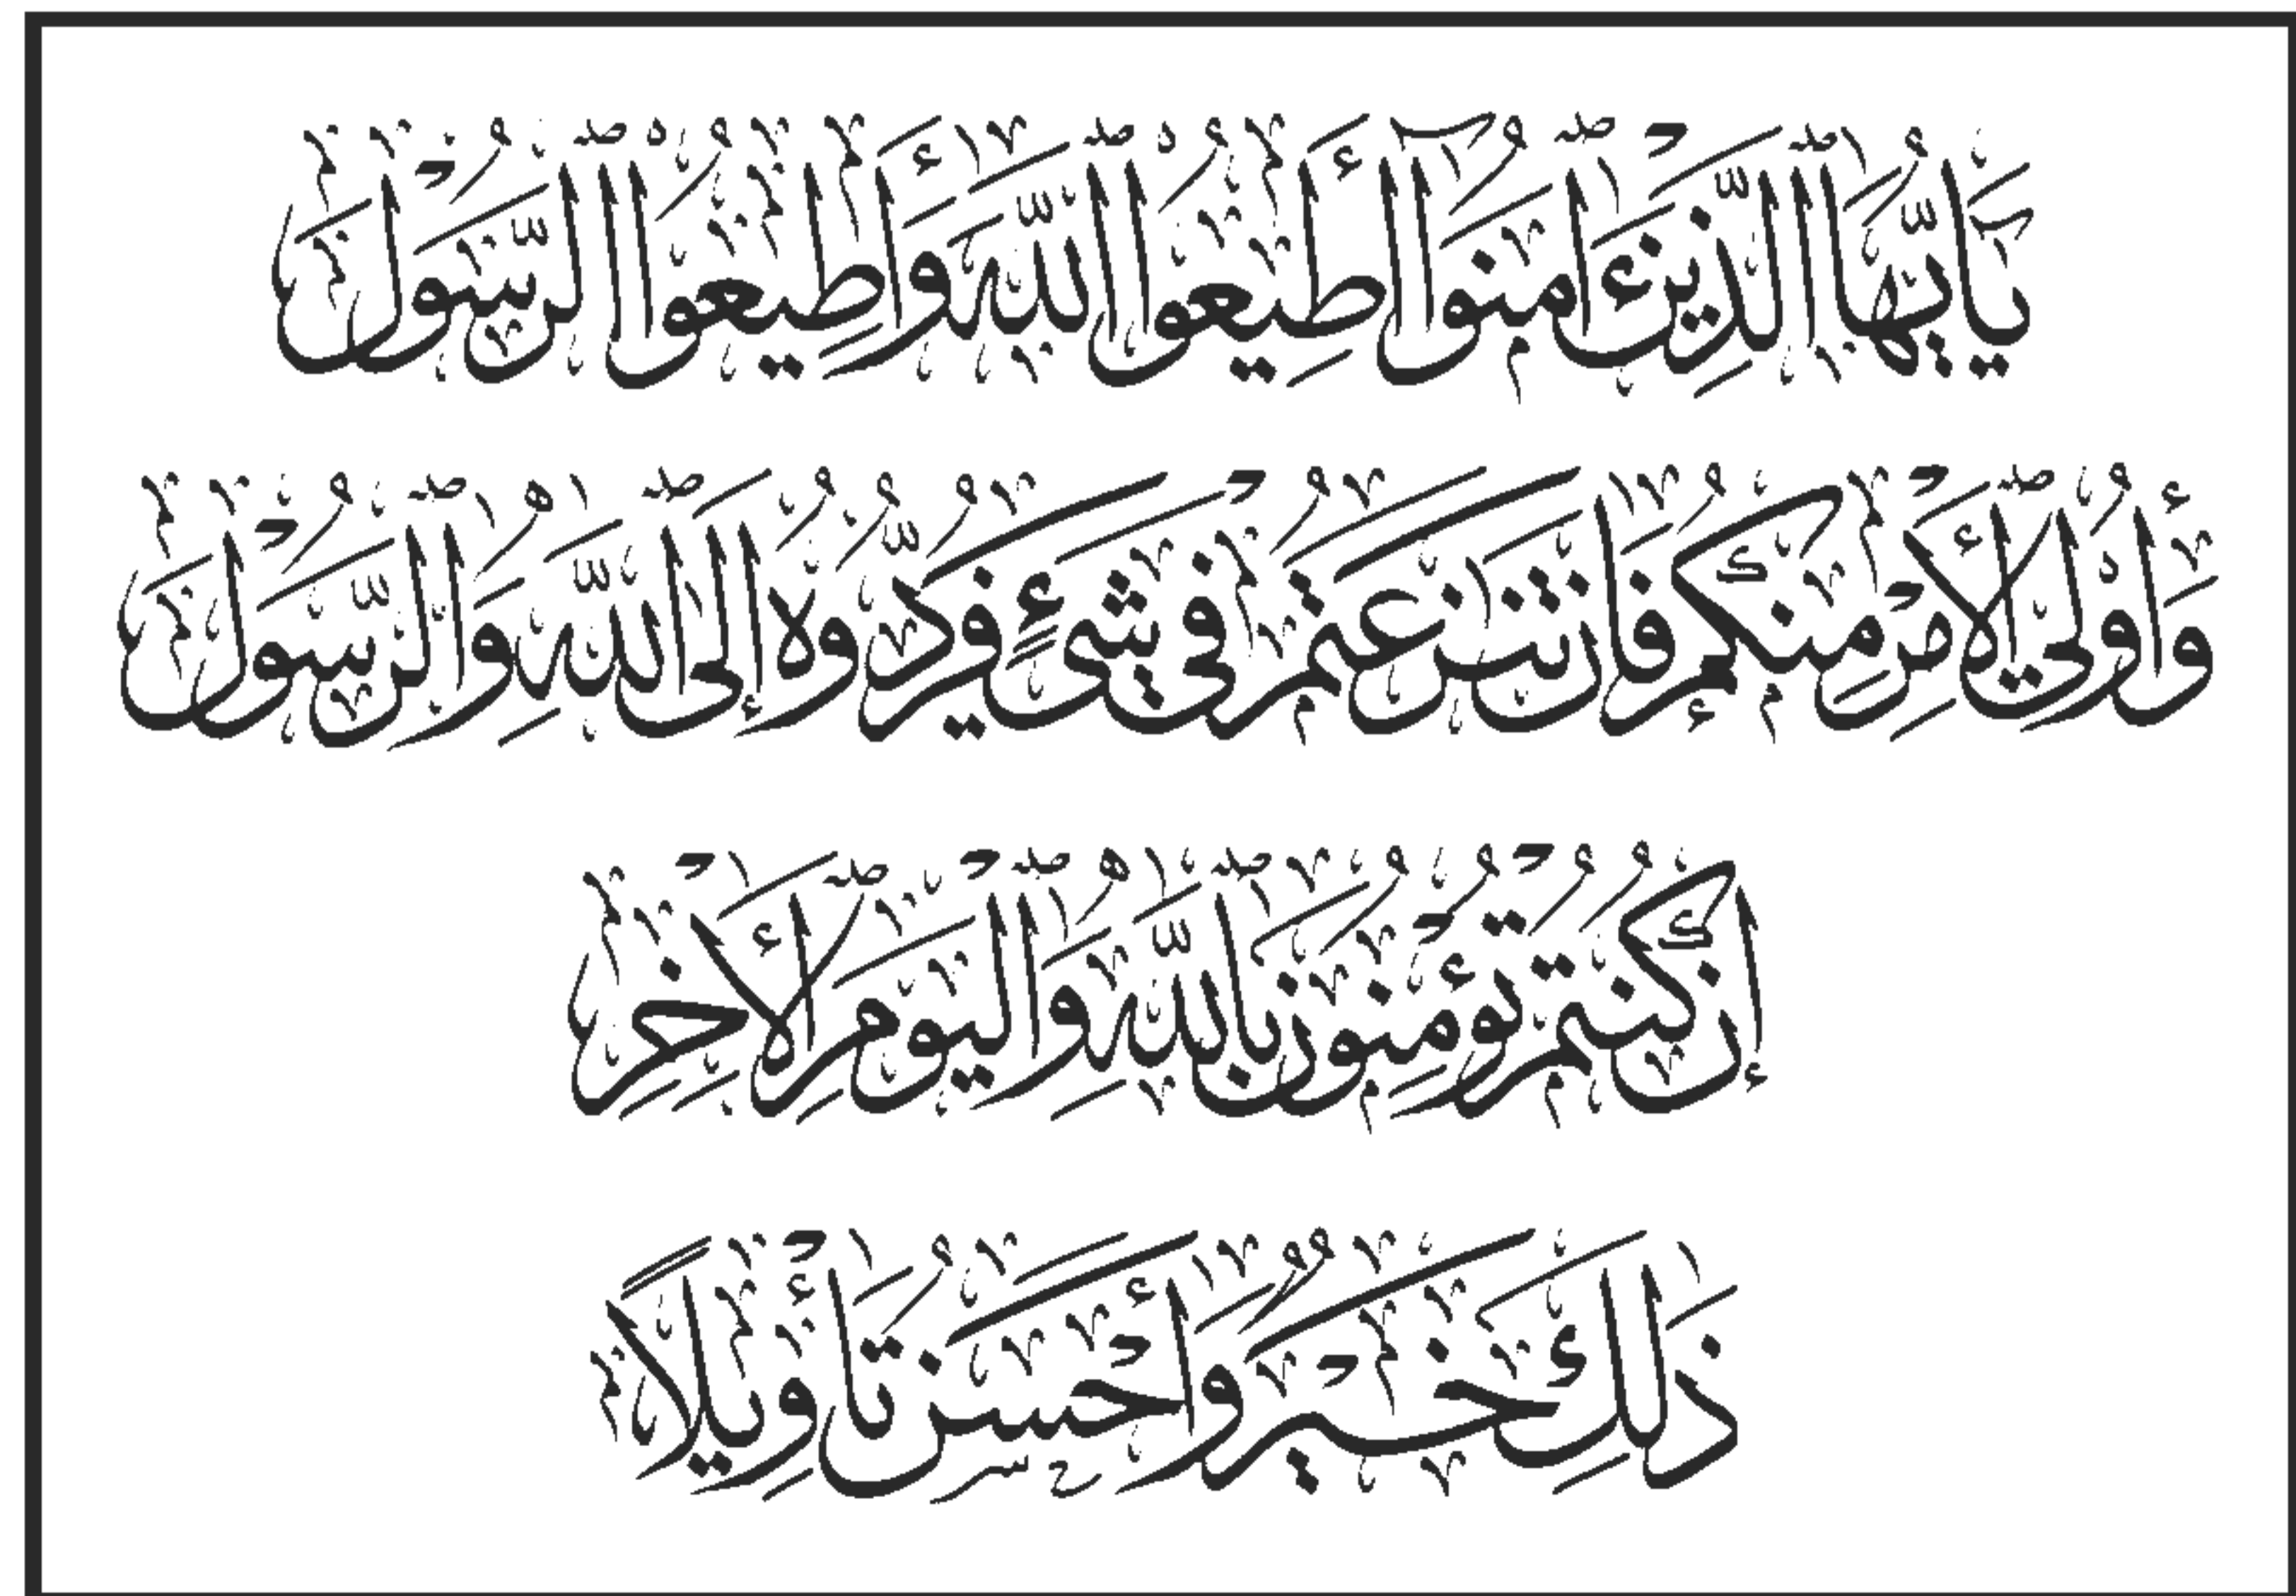 يَا أَيُّهَا الَّذِينَ ءَامَنُوا أَطِيعُوا اللَّهَ وَأَطِيعُوا الرَّسُولَ
وَأُوْلِي الْأَمْرِ مِنكُمْ فَإِن تَنَزَعْتُمْ فِي شَيْءٍ فَرُدُّوهُ إِلَى اللَّهِ وَالرَّسُولِ
إِن كُنتُمْ تُؤْمِنُونَ بِاللَّهِ وَالْيَوْمِ الْأَخِرِ
ذَلِكَ خَيْرٌ وَأَحْسَنُ تَأْوِيلًا